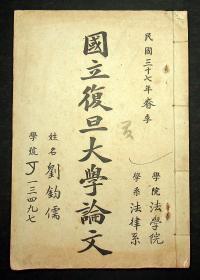 民國三十七年春季
學院 法學院
學系 法律系
國立復旦大學論文
姓名 劉鈞儒
學號 丁一三四九七